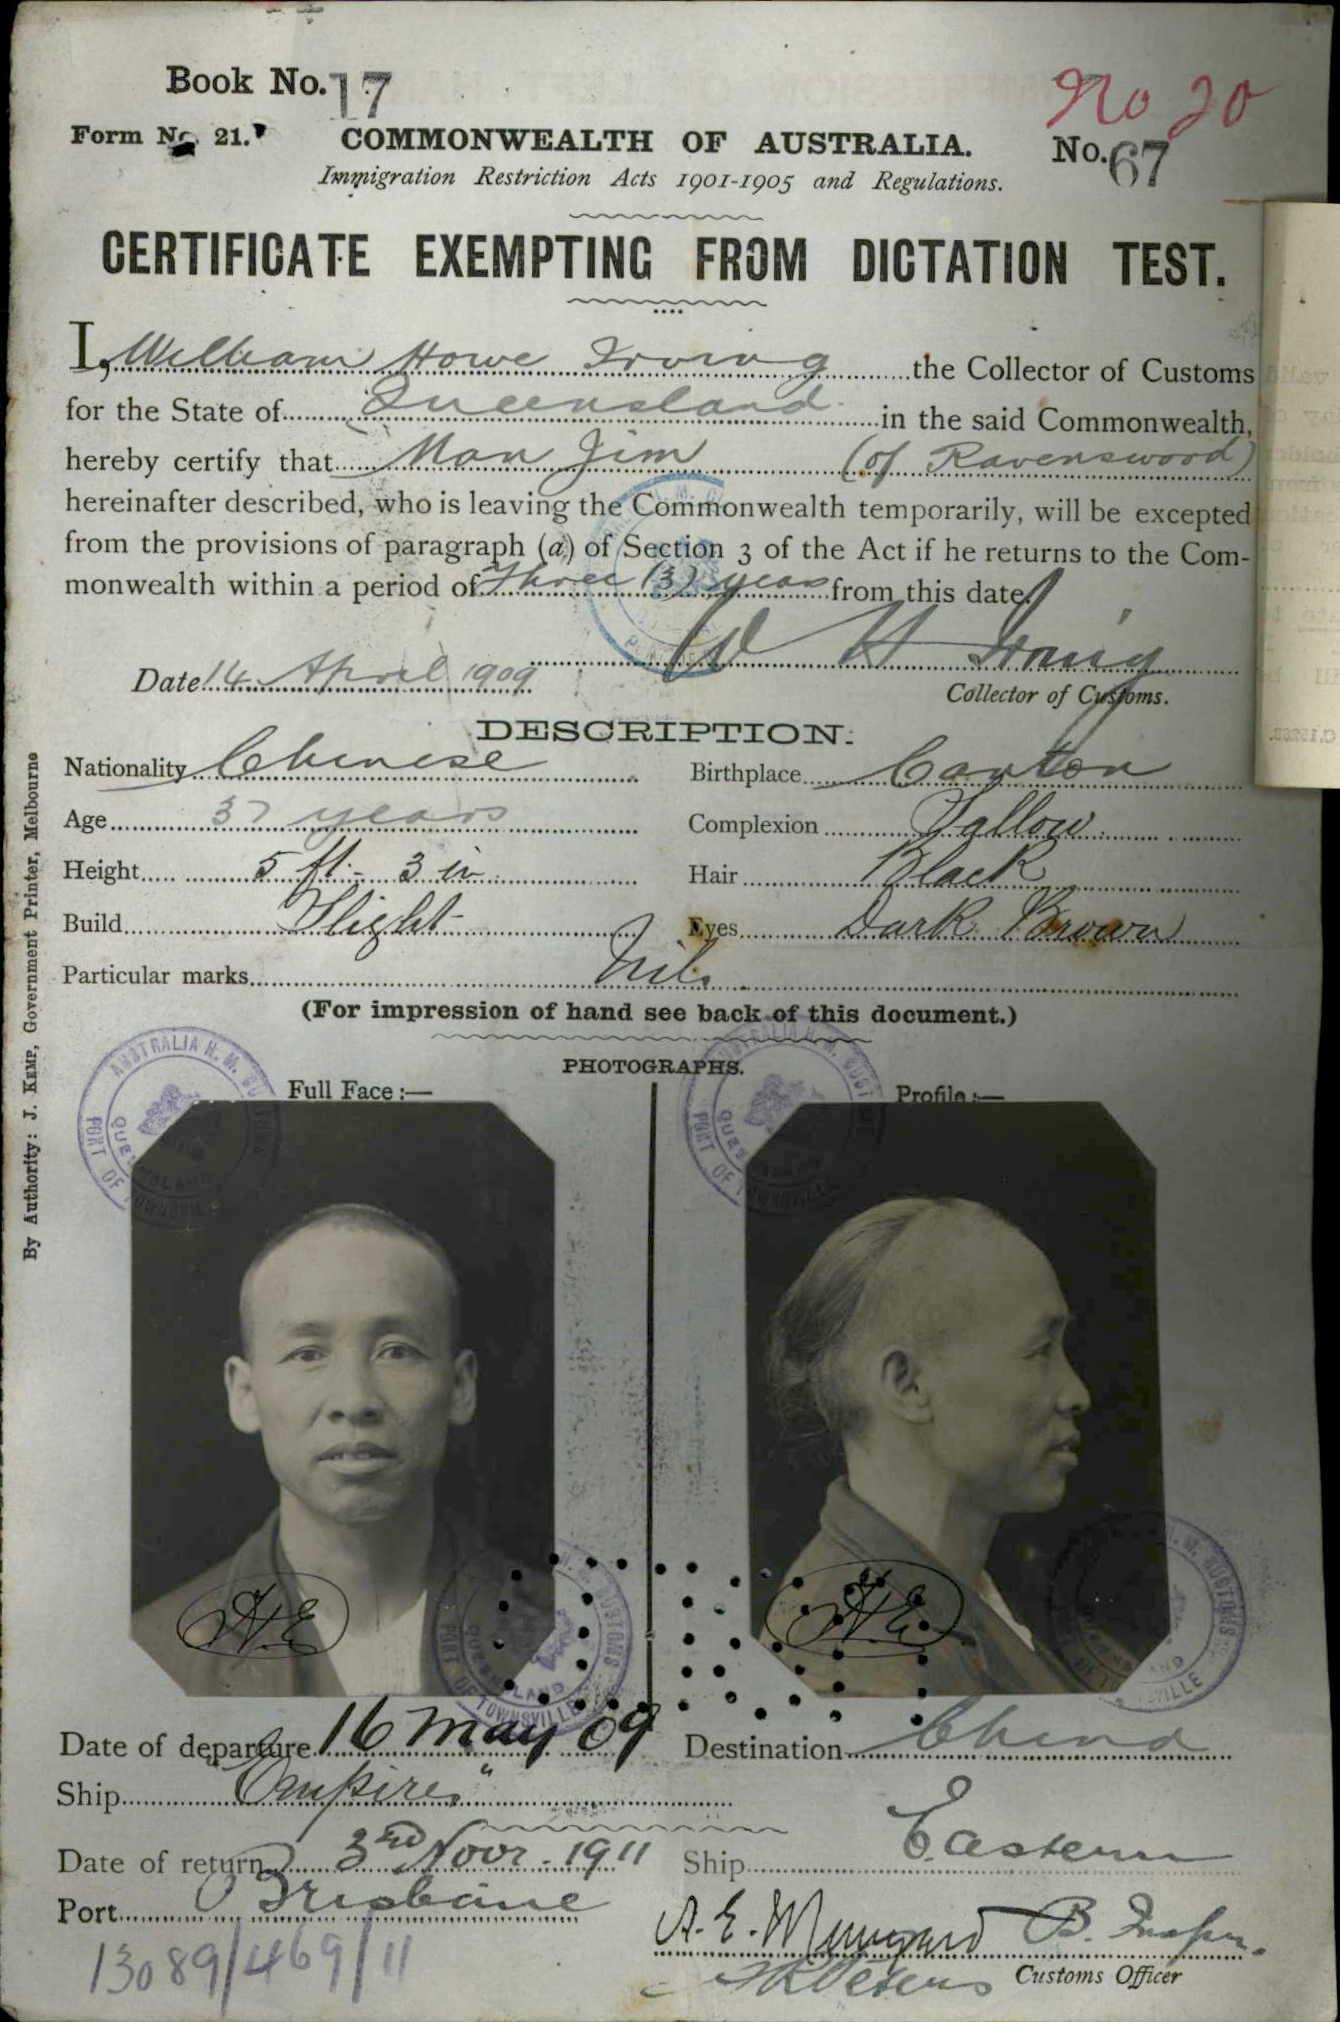 Book No. 17
No 20
Form No. 21.
COMMONWEALTH OF AUSTRALIA.
No. 67
Immigration Restriction Acts 1901-1905 and Regulations.
CERTIFICATE EXEMPTING FROM DICTATION TEST.
I, William Howe Irving the Collector of Customs
for the State of Queensland in the said Commonwealth,
hereby certify that Man Jim (of Ravenswood)
hereinafter described, who is leaving the Commonwealth temporarily, will be excepted
from the provisions of paragraph (a) of Section 3 of the Act if he returns to the Com-
monwealth within a period of Three (3) years from this date.
W H Irving
Date 14 April 1909
Collector of Customs.
DESCRIPTION.
Nationality Chinese Birthplace Canton
Age 37 years Complexion Sallow
Height 5 ft. 3 in Hair Black
Build Slight Eyes Dark Brown
Particular marks Nil.
(For impression of hand see back of this document.)
PHOTOGRAPHS.
Full Face :— Profile :—
AUSTRALIA H. M. CUSTOMS
QUEENSLAND
PORT OF TOWNSVILLE
AUSTRALIA H. M. CUSTOMS
QUEENSLAND
PORT OF TOWNSVILLE
H.E
H.E
H. M. CUSTOMS
QUEENSLAND
PORT OF TOWNSVILLE
H. M. CUSTOMS
Date of departure 16 May 09 Destination China
Ship "Empire"
Date of return 3rd Novr. 1911 Ship Eastern
Port Brisbane
A. E. B. Inspr.
Customs Officer
13089/469/11
By Authority: J. KEMP, Government Printer, Melbourne